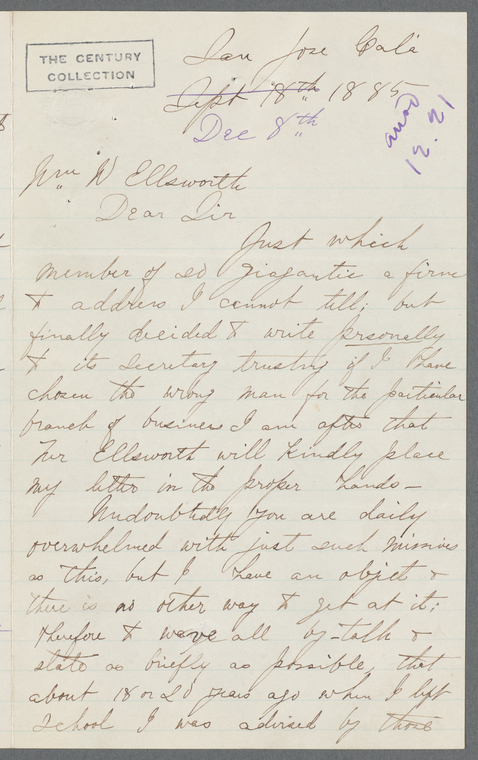 THE CENTURY
COLLECTION
San Jose Cala
Sept 18th 1885
Dec 8th
ansd
12.21
Wm W Ellsworth
Dear Sir
Just which
member of so gigantic a firm
to address I cannot tell; but
finally decided to write personally
to its secretary trusting if I have
chosen the wrong man for the particular
branch of business I am after that
Mr Ellsworth will kindly place
my letter in the proper hands—
Undoubtedly you are daily
overwhelmed with just such missives
as this, but I have an object &
there is no other way to get at it;
therefore to wave all by-talk &
state as briefly as possible, that
about 18 or 20 years ago when I left
school I was advised by those